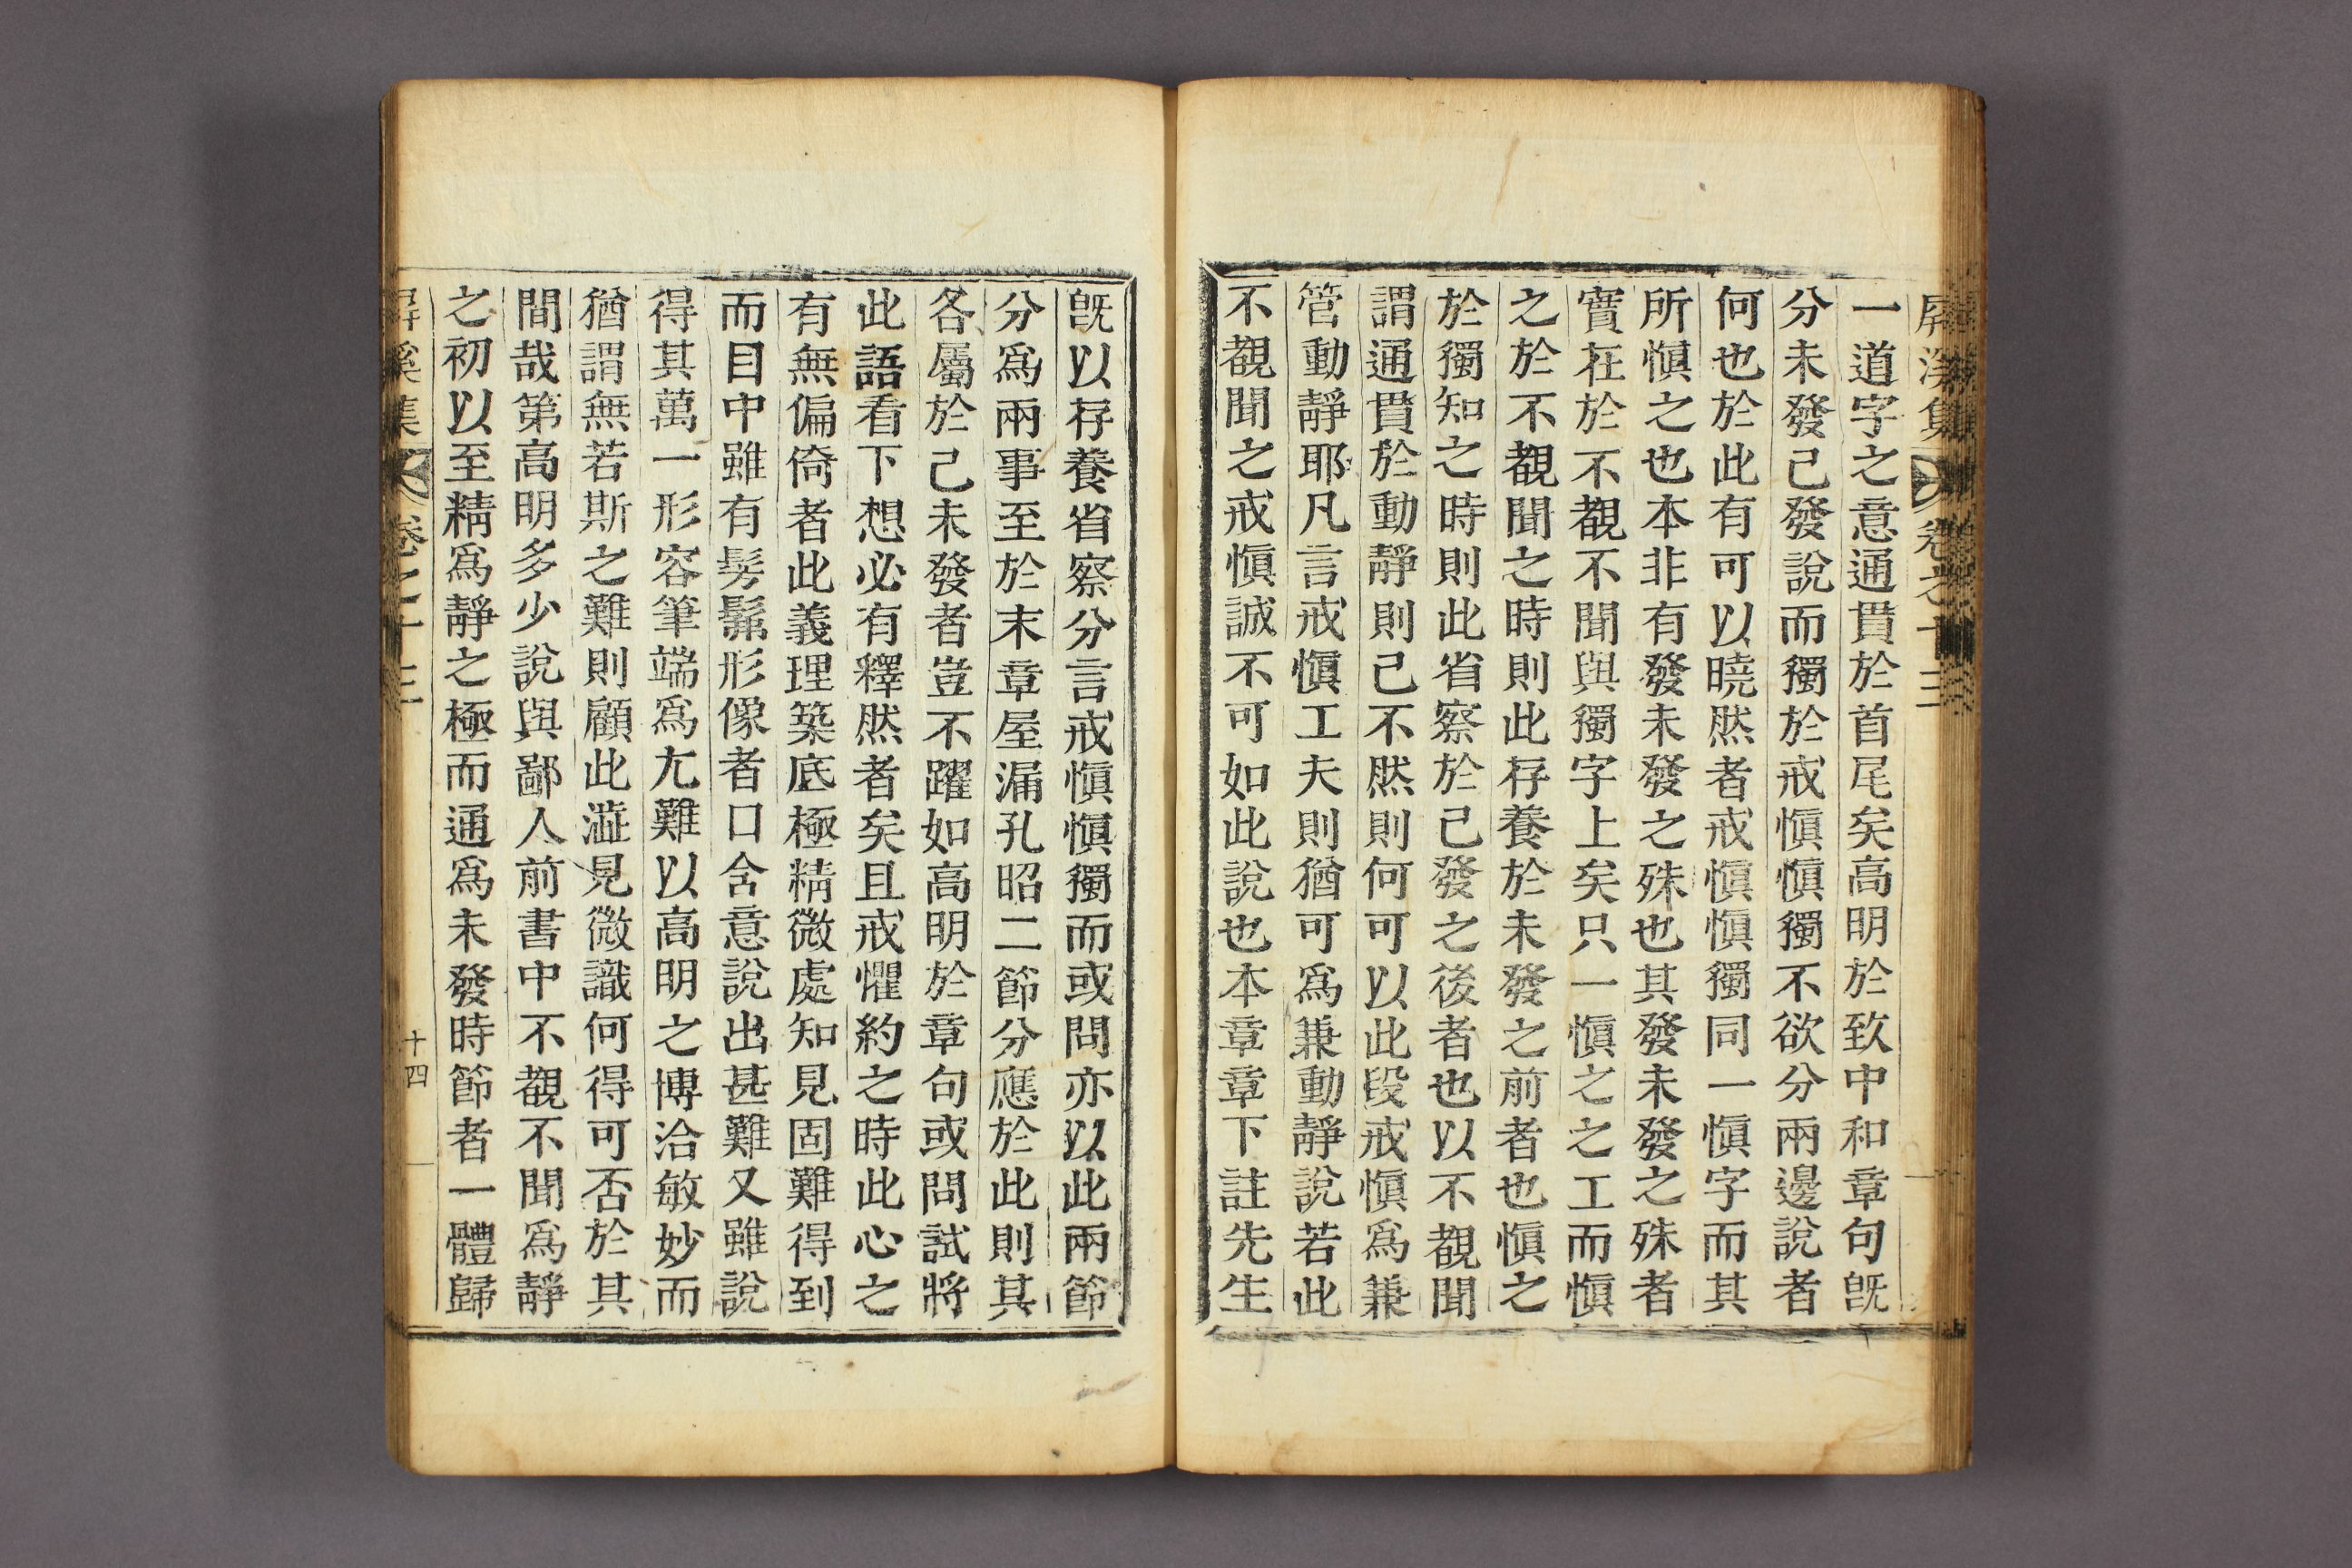 屛溪集 卷之十三
一道字之意通貫於首尾矣高明於致中和章句旣
分未發已發說而獨於戒愼愼獨不欲分兩邊說者
何也於此有可以曉然者戒愼愼獨同一愼字而其
所愼之也本非有發未發之殊也其發未發之殊者
實在於不覩不聞與獨字上矣只一愼之之工而愼
之於不覩聞之時則此存養於未發之前者也愼之
於獨知之時則此省察於已發之後者也以不覩聞
謂通貫於動靜則已不然則何可以此段戒愼爲兼
管動靜耶凡言戒愼工夫則猶可爲兼動靜說若此
不覩聞之戒愼誠不可如此說也本章章下註先生
旣以存養省察分言戒愼愼獨而或問亦以此兩節
分爲兩事至於末章屋漏孔昭二節分應於此則其
各屬於已未發者豈不躍如高明於章句或問試將
此語看下想必有釋然者矣且戒懼約之時此心之
有無偏倚者此義理築底極精微處知見固難得到
而目中雖有髣髴形像者口含意說出甚難又雖說
得其萬一形容筆端爲尤難以高明之博洽敏妙而
猶謂無若斯之難則顧此澁見微識何得可否於其
間哉第高明多少說與鄙人前書中不覩不聞爲靜
之初以至精爲靜之極而通爲未發時節者一體歸
屛溪集 卷之十三 十四